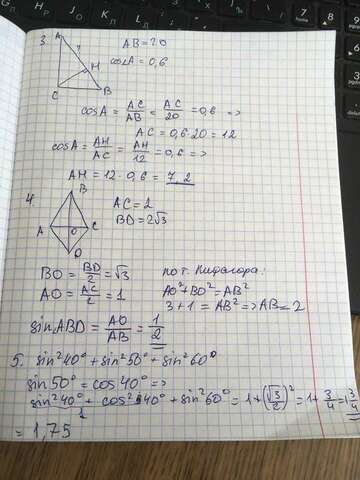 3. A
AB = 20
?
cosA = 0,6
H
C B
cosA = AC/AB = AC/20 = 0,6 =>
AC = 0,6·20 = 12
cosA = AH/AC = AH/12 = 0,6 =>
AH = 12 · 0,6 = 7,2
4.
B
AC = 2
BD = 2√3
A O C
D
BO = BD/2 = √3 по т. Пифагора:
AO = AC/2 = 1 AO² + BO² = AB²
3 + 1 = AB² => AB = 2
sin ABD = AO/AB = 1/2
5. sin²40° + sin²50° + sin²60°
sin 50° = cos 40° =>
sin²40° + cos²40° + sin²60° = 1 + (√3/2)² = 1 + 3/4 = 1 3/4
1
= 1,75